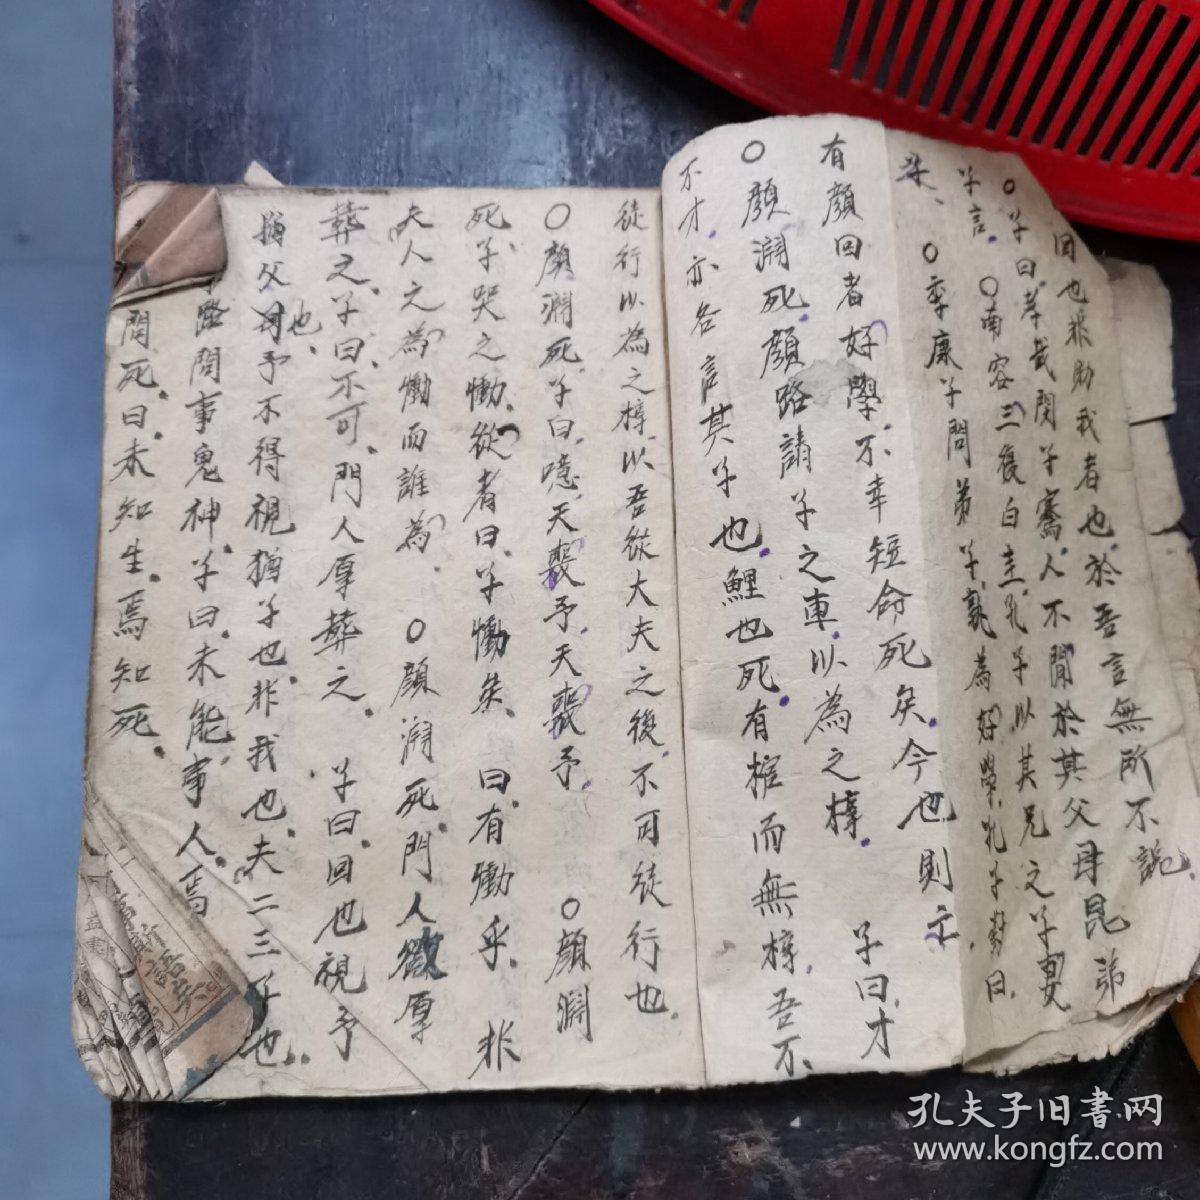 回也非助我者也於吾言無所不說
○子曰孝哉閔子騫人不間於其父母昆弟
子言○南容三復白圭孔子以其兄之子妻
○季康子問弟子孰為好學孔子對曰
有顏回者好學不幸短命死矣今也則亡
○顏淵死顏路請子之車以為之椁子曰才
不才亦各言其子也鯉也死有棺而無椁吾不
徒行以為之椁以吾從大夫之後不可徒行也
○顏淵死子曰噫天喪予天喪予○顏淵
死子哭之慟從者曰子慟矣曰有慟乎非
夫人之為慟而誰為○顏淵死門人欲厚
葬之子曰不可門人厚葬之子曰回也視予
猶父也予不得視猶子也非我也夫二三子也
路問事鬼神子曰未能事人焉
問死曰未知生焉知死
孔夫子旧书网
www.kongfz.com